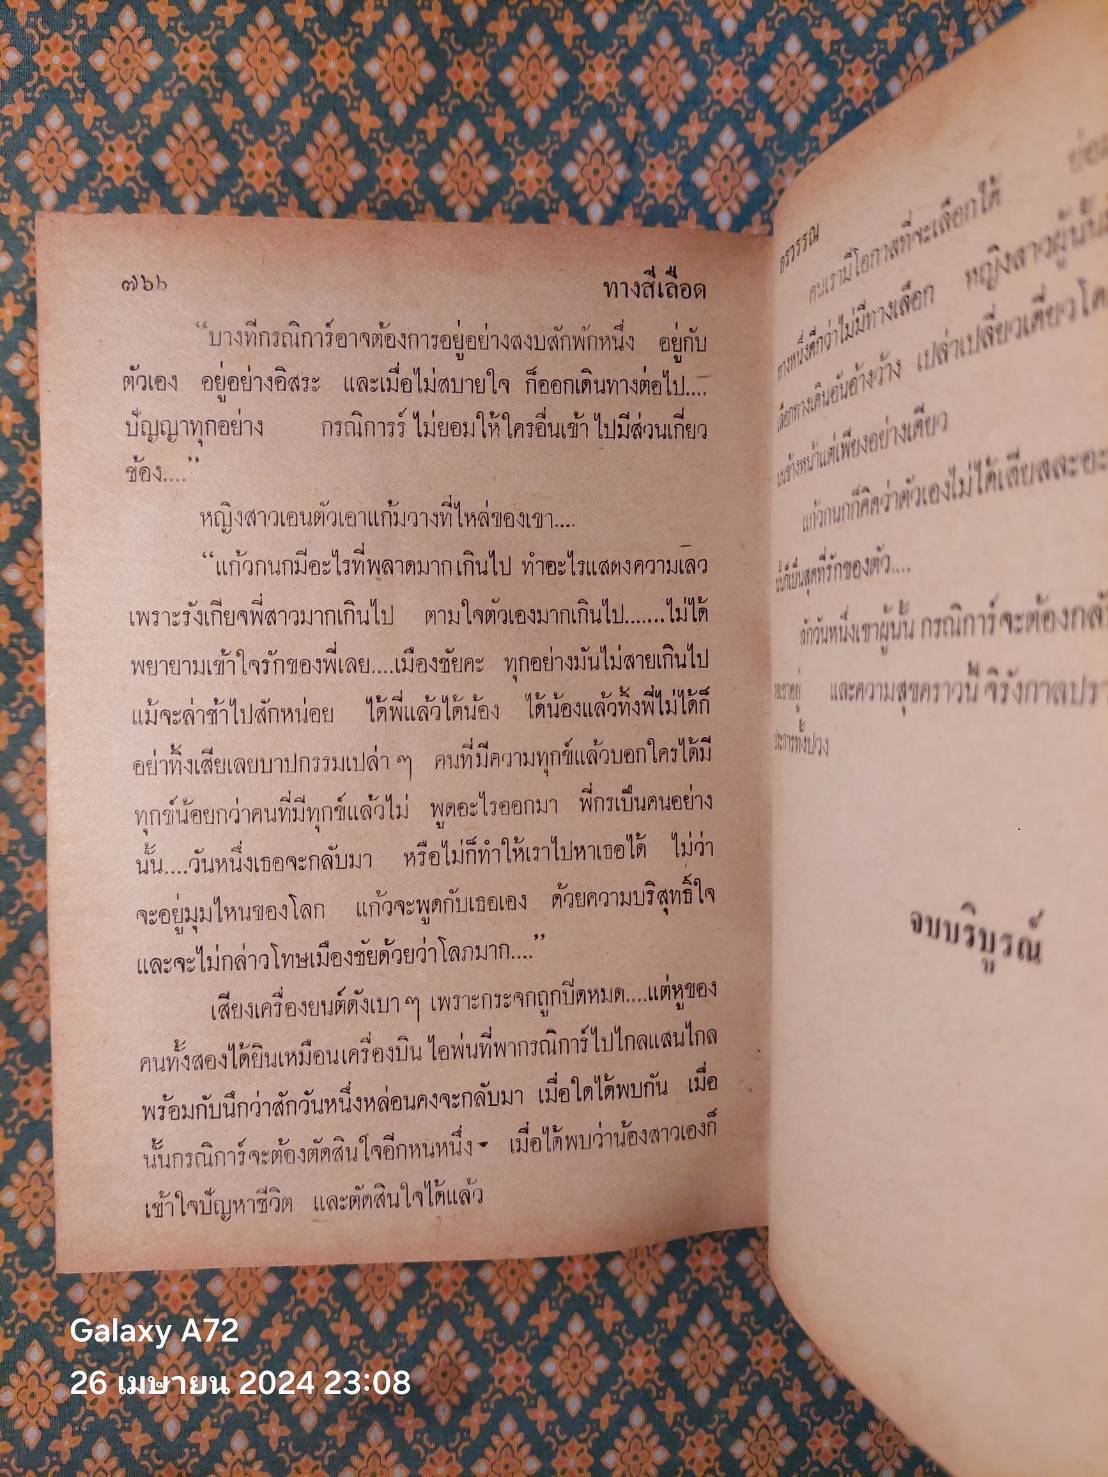 ๗๖๖
ทางสีเลือด
“บางทีกรณิการ์อาจต้องการอยู่อย่างสงบสักพักหนึ่ง อยู่กับ
ตัวเอง อยู่อย่างอิสระ และเมื่อไม่สบายใจ ก็ออกเดินทางต่อไป....
ปัญญาทุกอย่าง กรณิการร์ ไม่ยอมให้ใครอื่นเข้าไปมีส่วนเกี่ยว
ข้อง....”
หญิงสาวเอนตัวเอาแก้มวางที่ไหล่ของเขา....
“แก้วกนกมีอะไรที่พลาดมากเกินไป ทำอะไรแสดงความเลว
เพราะรังเกียจพี่สาวมากเกินไป ตามใจตัวเองมากเกินไป.......ไม่ได้
พยายามเข้าใจรักของพี่เลย....เมืองชัยคะ ทุกอย่างมันไม่สายเกินไป
แม้จะล่าช้าไปสักหน่อย ได้พี่แล้วได้น้อง ได้น้องแล้วทิ้งพี่ไม่ได้ก็
อย่าทิ้งเสียเลยบาปกรรมเปล่า ๆ คนที่มีความทุกข์แล้วบอกใครได้มี
ทุกข์น้อยกว่าคนที่มีทุกข์แล้วไม่ พูดอะไรออกมา พี่กรเป็นคนอย่าง
นั้น....วันหนึ่งเธอจะกลับมา หรือไม่ก็ทำให้เราไปหาเธอได้ ไม่ว่า
จะอยู่มุมไหนของโลก แก้วจะพูดกับเธอเอง ด้วยความบริสุทธิ์ใจ
และจะไม่กล่าวโทษเมืองชัยด้วยว่าโลภมาก....”
เสียงเครื่องยนต์ดังเบา ๆ เพราะกระจกถูกปิดหมด....แต่หูของ
คนทั้งสองได้ยินเหมือนเครื่องบิน ไอพ่นที่พากรณิการ์ไปไกลแสนไกล
พร้อมกับนึกว่าสักวันหนึ่งหล่อนคงจะกลับมา เมื่อใดได้พบกัน เมื่อ
นั้นกรณิการ์จะต้องตัดสินใจอีกหนหนึ่ง- เมื่อได้พบว่าน้องสาวเองก็
เข้าใจปัญหาชีวิต และตัดสินใจได้แล้ว
อรวรรณ
คนเรามีโอกาสที่จะเลือกได้
ทางหนึ่งดีกว่าไม่มีทางเลือก หญิงสาวผู้นั้น
เลือกทางเดินอันอ้างว้าง เปล่าเปลี่ยวเดียวโด
ข้างหน้าแต่เพียงอย่างเดียว
แก้วกนกก็คิดว่าตัวเองไม่ได้เสียสละอะ
นั้นก็เป็นสุดที่รักของตัว....
สักวันหนึ่งเขาผู้นั้น กรณิการ์จะต้องกลับ
และความสุขคราวนี้ จิรังกาลปรา
ประการทั้งปวง
จบบริบูรณ์
Galaxy A72
26 เมษายน 2024 23:08